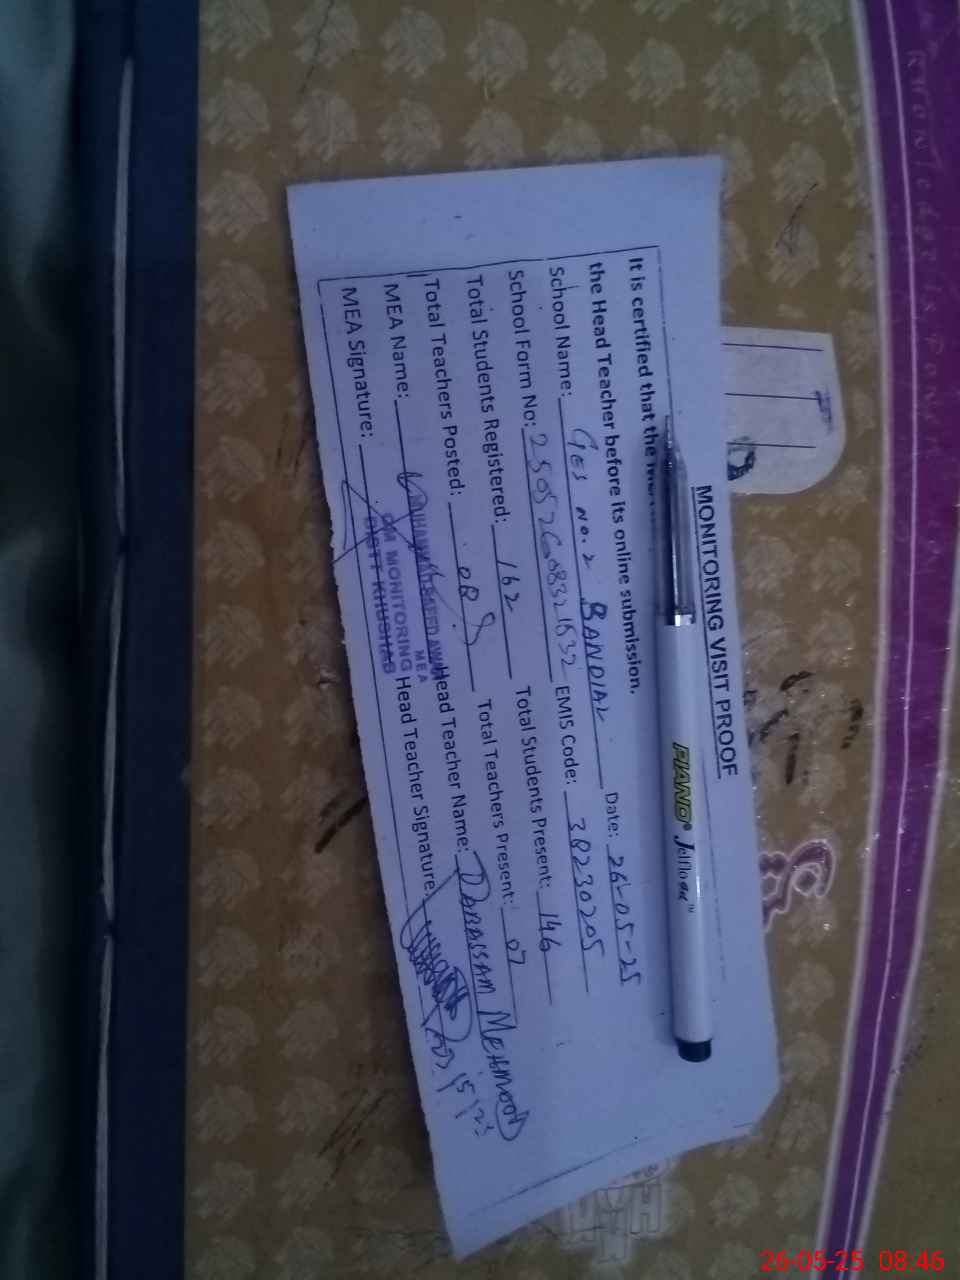 MONITORING VISIT PROOF
It is certified that the
the Head Teacher before its online submission.
School Name: GES NO. 2 BANDIAL Date: 26-05-25
School Form No: EMIS Code: 38230205
Total Students Registered: 162 Total Students Present: 146
Total Teachers Posted: 08 Total Teachers Present: 07
MEA Name: Head Teacher Name: DABASSAM MEHMOOD
MEA Signature: Head Teacher Signature:
MUHAMMAD SAEED AWAN
MEA
CM MONITORING
DISTT KHUSHAB
PIANO® Jelfloar™
26-05-25 08:46